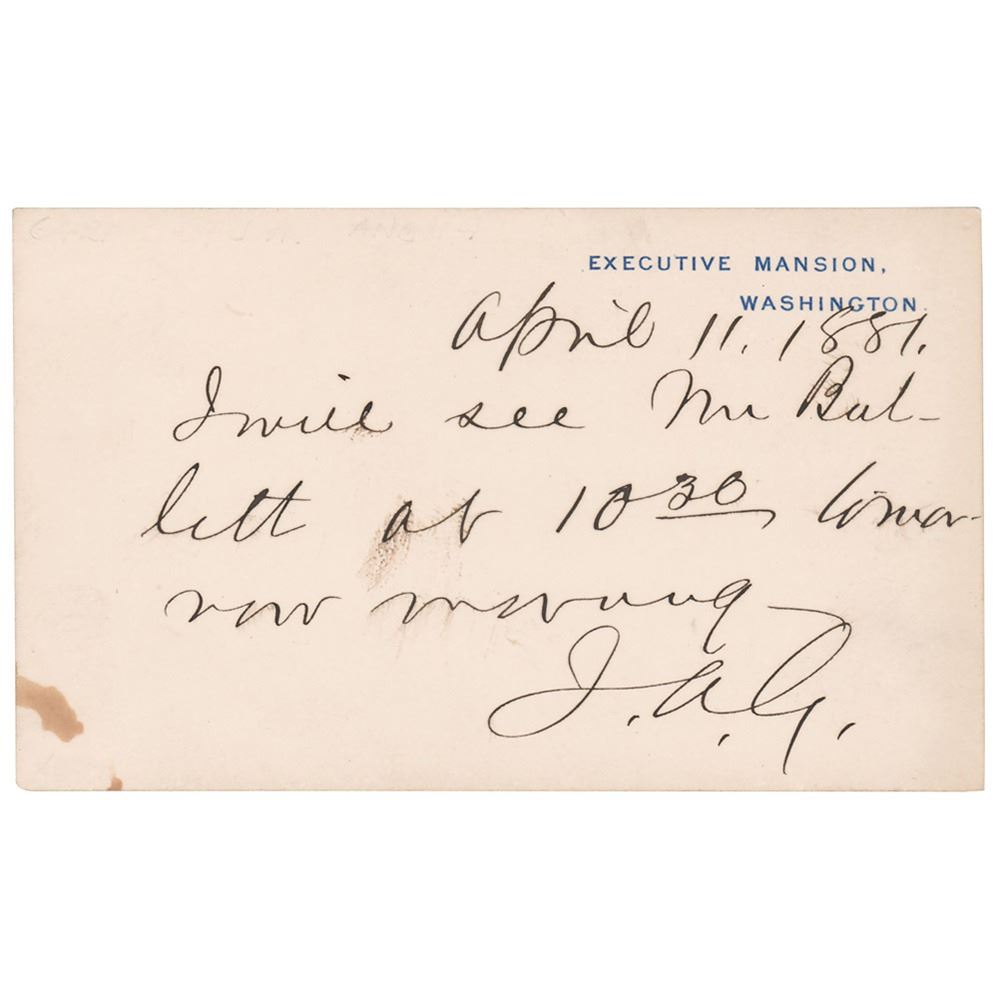 EXECUTIVE MANSION,
WASHINGTON.
April 11. 1881.
I will see Mr Bul-
lett at 10 30 tomor-
row morning
J.A.G.